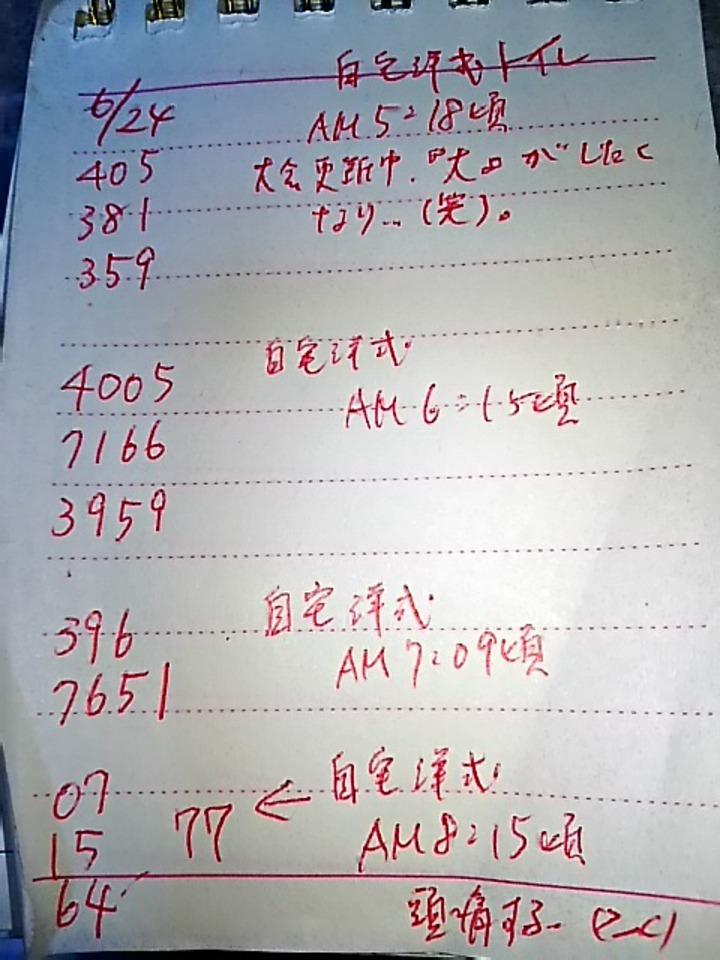 自宅洋式トイレ
6/24
AM 5:18頃
405
大会更新中、『大』がしたく
381
なり…(笑)。
359
自宅洋式
4005
AM 6:15頃
7166
3959
自宅洋式
396
AM 7:09頃
7651
自宅洋式
07
77 ←
15
AM 8:15頃
64
頭痛する…